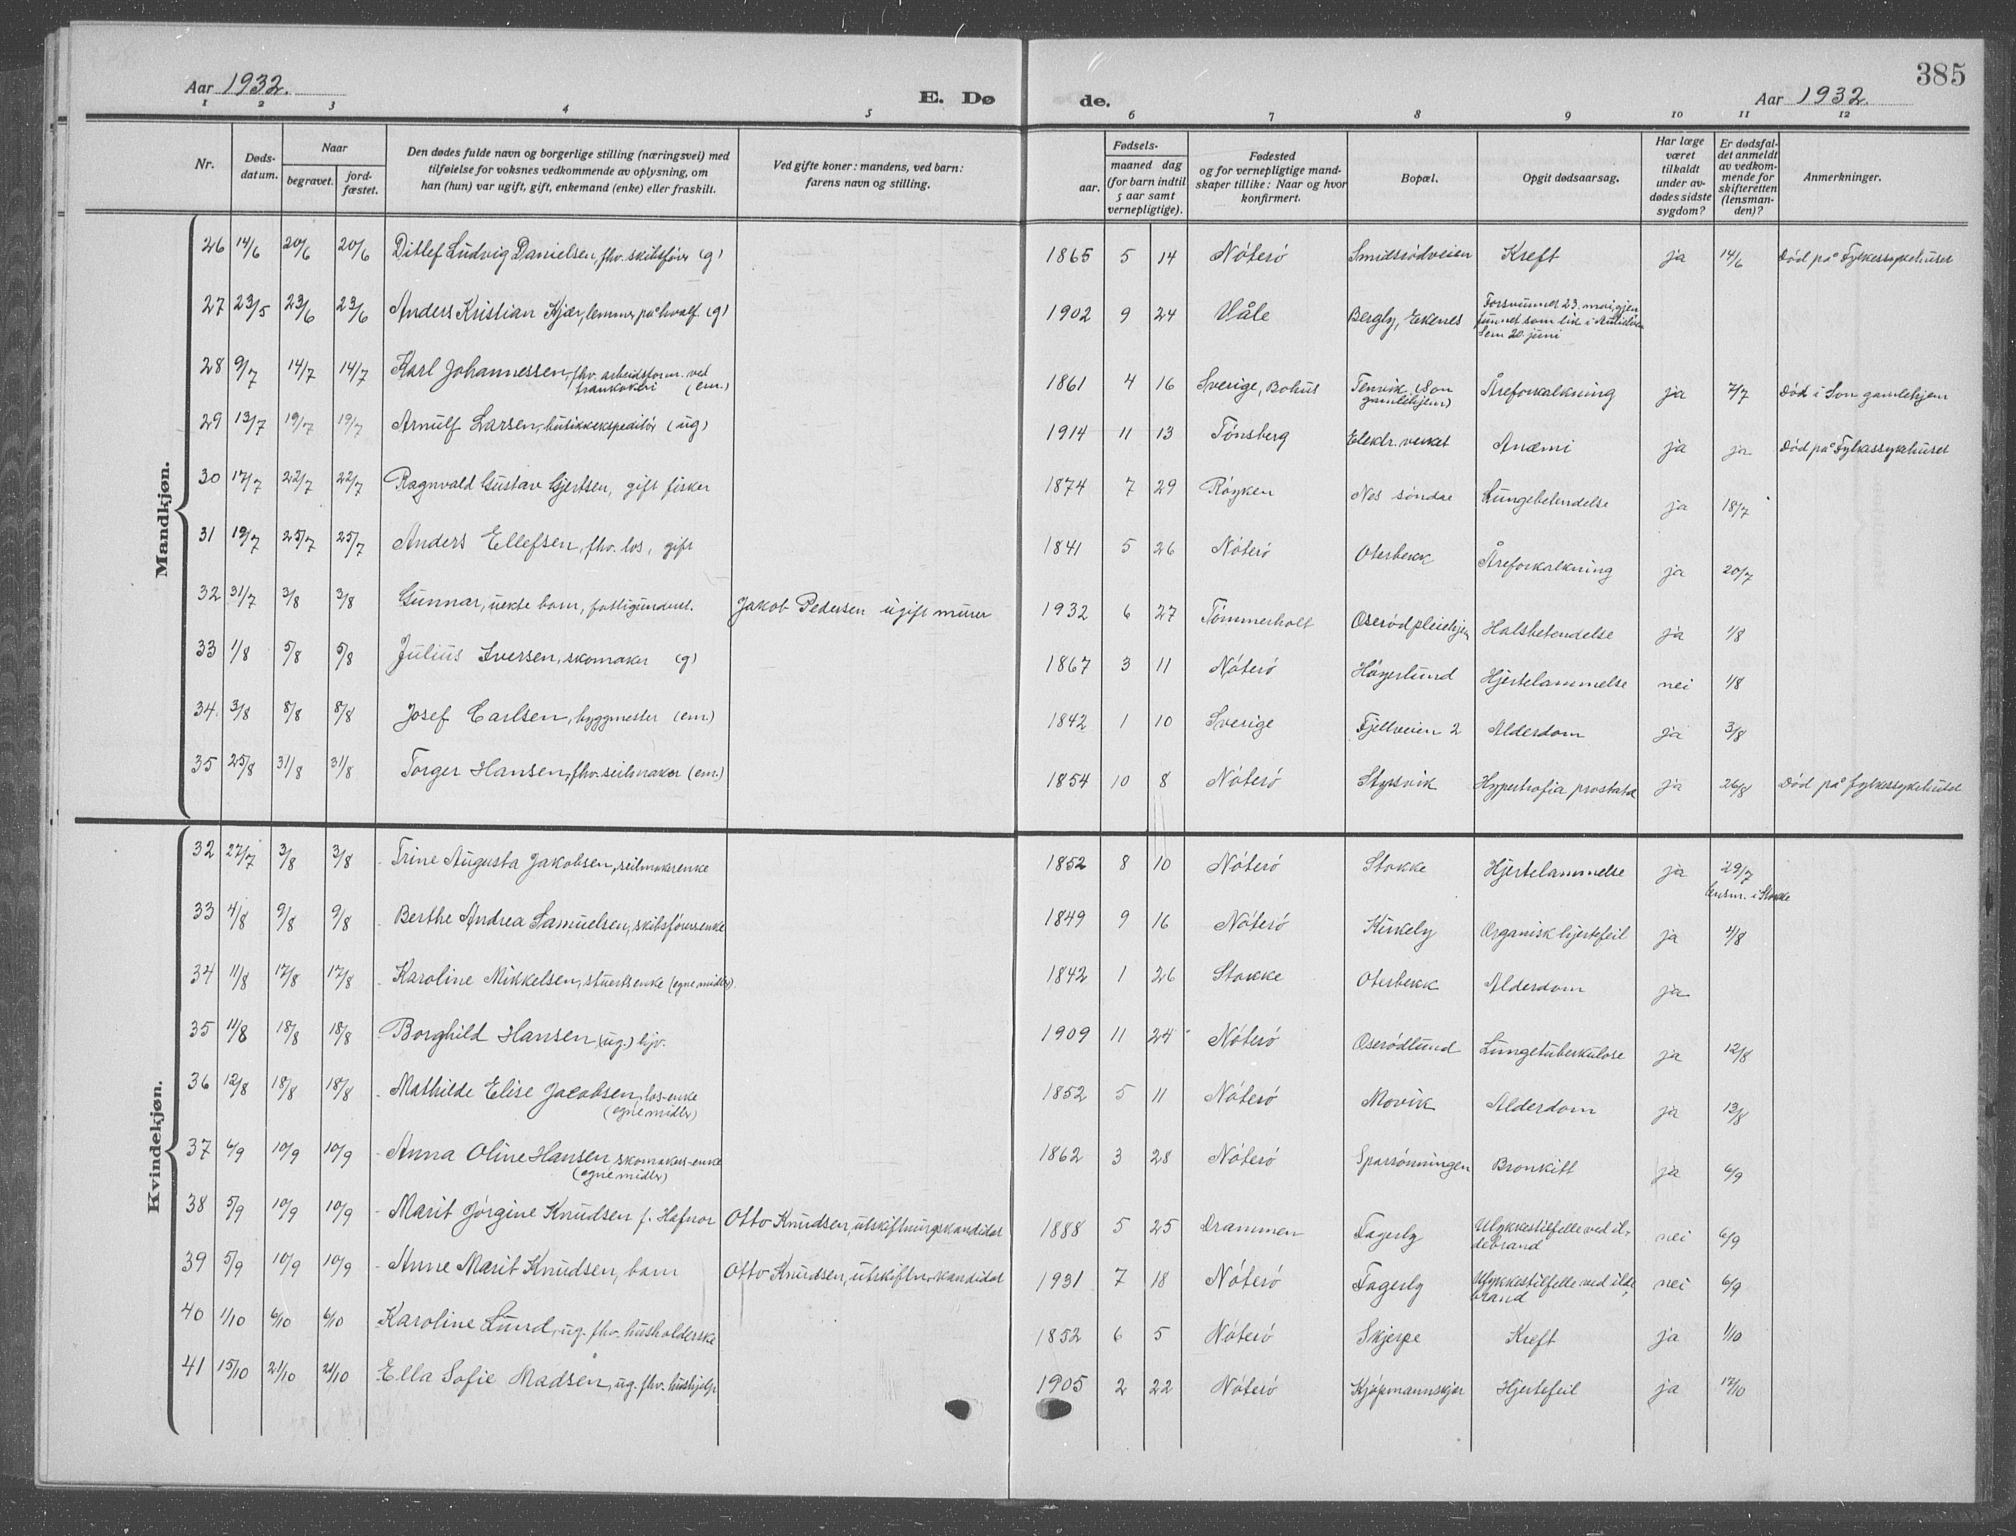 385
Aar 1932. E. Dø de. Aar 1932.
1 2 3 4 5 6 7 8 9 10 11 12
Nr.
Døds-
datum.
Naar
begravet.
jord-
fæstet.
Den dødes fulde navn og borgerlige stilling (næringsvei) med
tilføielse for voksnes vedkommende av oplysning, om
han (hun) var ugift, gift, enkemand (enke) eller fraskilt.
Ved gifte koner: mandens, ved barn:
farens navn og stilling.
Fødsels-
aar.
maaned dag
(for barn indtil
5 aar samt
vernepligtige).
Fødested
og for vernepligtige mand-
skaper tillike: Naar og hvor
konfirmert.
Bopæl.
Opgit dødsaarsag.
Har læge
været
tilkaldt
under av-
dødes sidste
sygdom?
Er dødsfal-
det anmeldt
av vedkom-
mende for
skifteretten
(lensman-
den)?
Anmerkninger.
Mandkjøn.
26 14/6 20/6 20/6 Ditlef Ludvig Danielsen, fhv. skibsfører (g) 1865 5 14 Nøterø Smidsrødveien Kreft ja 14/6 Død på Fylkessykehuset
27 23/5 23/6 23/6 Anders Kristian Kjær, lemmer på hvalf. (g) 1902 9 24 Våle Bergly, Ekenes Forsvunnet 23. mai, gjen
funnet som lik i Aulielven
Sem 20. juni
28 9/7 14/7 14/7 Karl Johannessen, fhv. arbeidsform. ved
trankokeri (em.) 1861 4 16 Sverige, Bohus Tenvik, (Son
gamlehjem) Åreforkalkning ja 7/7 Død i Son gamlehjem
29 13/7 19/7 19/7 Arnulf Larsen, butikkekspeditør (ug) 1914 11 13 Tønsberg Elektr. verket Anæmi ja ja Død på Fylkessykehuset
30 17/7 22/7 22/7 Ragnvald Gustav Gjertsen, gift fisker 1874 7 29 Røyken Nes søndre Lungebetendelse ja 18/7
31 19/7 25/7 25/7 Anders Ellefsen, fhv. los, gift 1841 5 26 Nøterø Oterbekk Åreforkalkning ja 20/7
32 31/7 3/8 3/8 Gunnar, uekte barn, fattigunderst. Jakob Pedersen ugift murer 1932 6 27 Tømmerholt Oserød pleiehjem Halsbetendelse ja 1/8
33 1/8 5/8 5/8 Julius Iversen, skomaker (g) 1867 3 11 Nøterø Høyerlund Hjertelammelse nei 1/8
34 3/8 8/8 8/8 Josef Carlsen, byggmester (em.) 1842 1 10 Sverige Fjellveien 2 Alderdom ja 3/8
35 25/8 31/8 31/8 Torger Hansen, fhv. seilmaker (em.) 1854 10 8 Nøterø Stysvik Hypertrofia prostata ja 26/8 Død på fylkessykehuset
Kvindekjøn.
32 27/7 3/8 3/8 Trine Augusta Jakobsen, seilmakerenke 1852 8 10 Nøterø Stokke Hjertelammelse ja 29/7
lensm. i Stokke
33 4/8 9/8 9/8 Berthe Andrea Samuelsen, skibsførerenke 1849 9 16 Nøterø Kirkeby Organisk hjertefeil ja 4/8
34 11/8 17/8 17/8 Karoline Mikkelsen, stuertsenke (egne midler) 1842 1 26 Stokke Oterbekk Alderdom ja
35 11/8 18/8 18/8 Borghild Hansen (ug.) hjv. 1909 11 24 Nøterø Oserødlund Lungetuberkulose ja 12/8
36 12/8 18/8 18/8 Mathilde Elise Jacobsen, los-enke
(egne midler) 1852 5 11 Nøterø Movik Alderdom ja 13/8
37 6/9 10/9 10/9 Anna Oline Hansen skomakers-enke
(egne midler) 1862 3 28 Nøterø Sparrønningen Bronkitt ja 6/9
38 5/9 10/9 10/9 Marit Jørgine Knudsen f. Hafnor Otto Knudsen, utskiftningskandidat 1888 5 25 Drammen Fagerly Ulykkestilfelle ved il-
debrand nei 6/9
39 5/9 10/9 10/9 Anne Marit Knudsen, barn Otto Knudsen, utskiftn. kandidat 1931 7 18 Nøterø Fagerly Ulykkestilfelle ved ilde-
brand nei 6/9
40 1/10 6/10 6/10 Karoline Lund, ug. fhv. husholderske 1852 6 5 Nøterø Skjerpe Kreft ja 1/10
41 15/10 21/10 21/10 Ella Sofie Madsen, ug. fhv. hushjelp 1905 2 22 Nøterø Kjøpmannskjær Hjertefeil ja 17/10